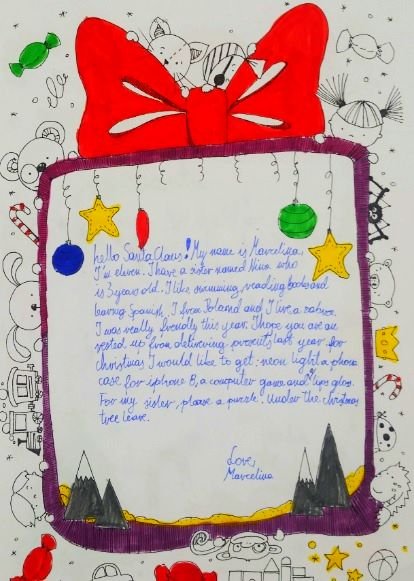 hello Santa Claus! My name is Marcelina,
I'm eleven. I have a sister named Nina, who
is 3 years old. I like swimming, reading books and
learing Spanish, I from Poland and I live a
I was really friendly this year. I hope you are all
rested up from delivering presents last year for
christmas I would like to get: neon light a phone
case for iphone 8, a computer game and lips gloss.
For my sister, please a puzzle. Under the christmas
tree leave.
Love,
Marcelina